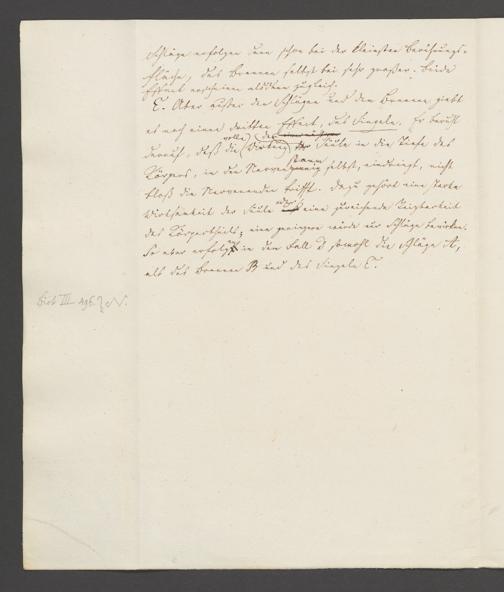 Schläge erfolgen denn schon bei der kleinsten Berührungs-
fläche, das Brennen selbst bei sehr großer. Beide
Effect erscheinen alsdann zugleich.
C. Aber außer den Schlägen und dem Brennen giebt
es noch einen dritten Effect, das Singeln. Er beruht
darauf, daß die volle Wirkung der Säule in die Tiefe des
Körpers, in den Nervenstamm selbst, eindringt, nicht
bloß die Nervenenden trifft. Dazu gehört eine starke
Wirksamkeit der Säule oder eine zureichende Reizbarkeit
des Körpertheils; eine geringere würde nur Schläge bewirken.
So aber erfolgt in dem Fall D sowohl die Schläge A,
als das Brennen B und das Singeln C.
III